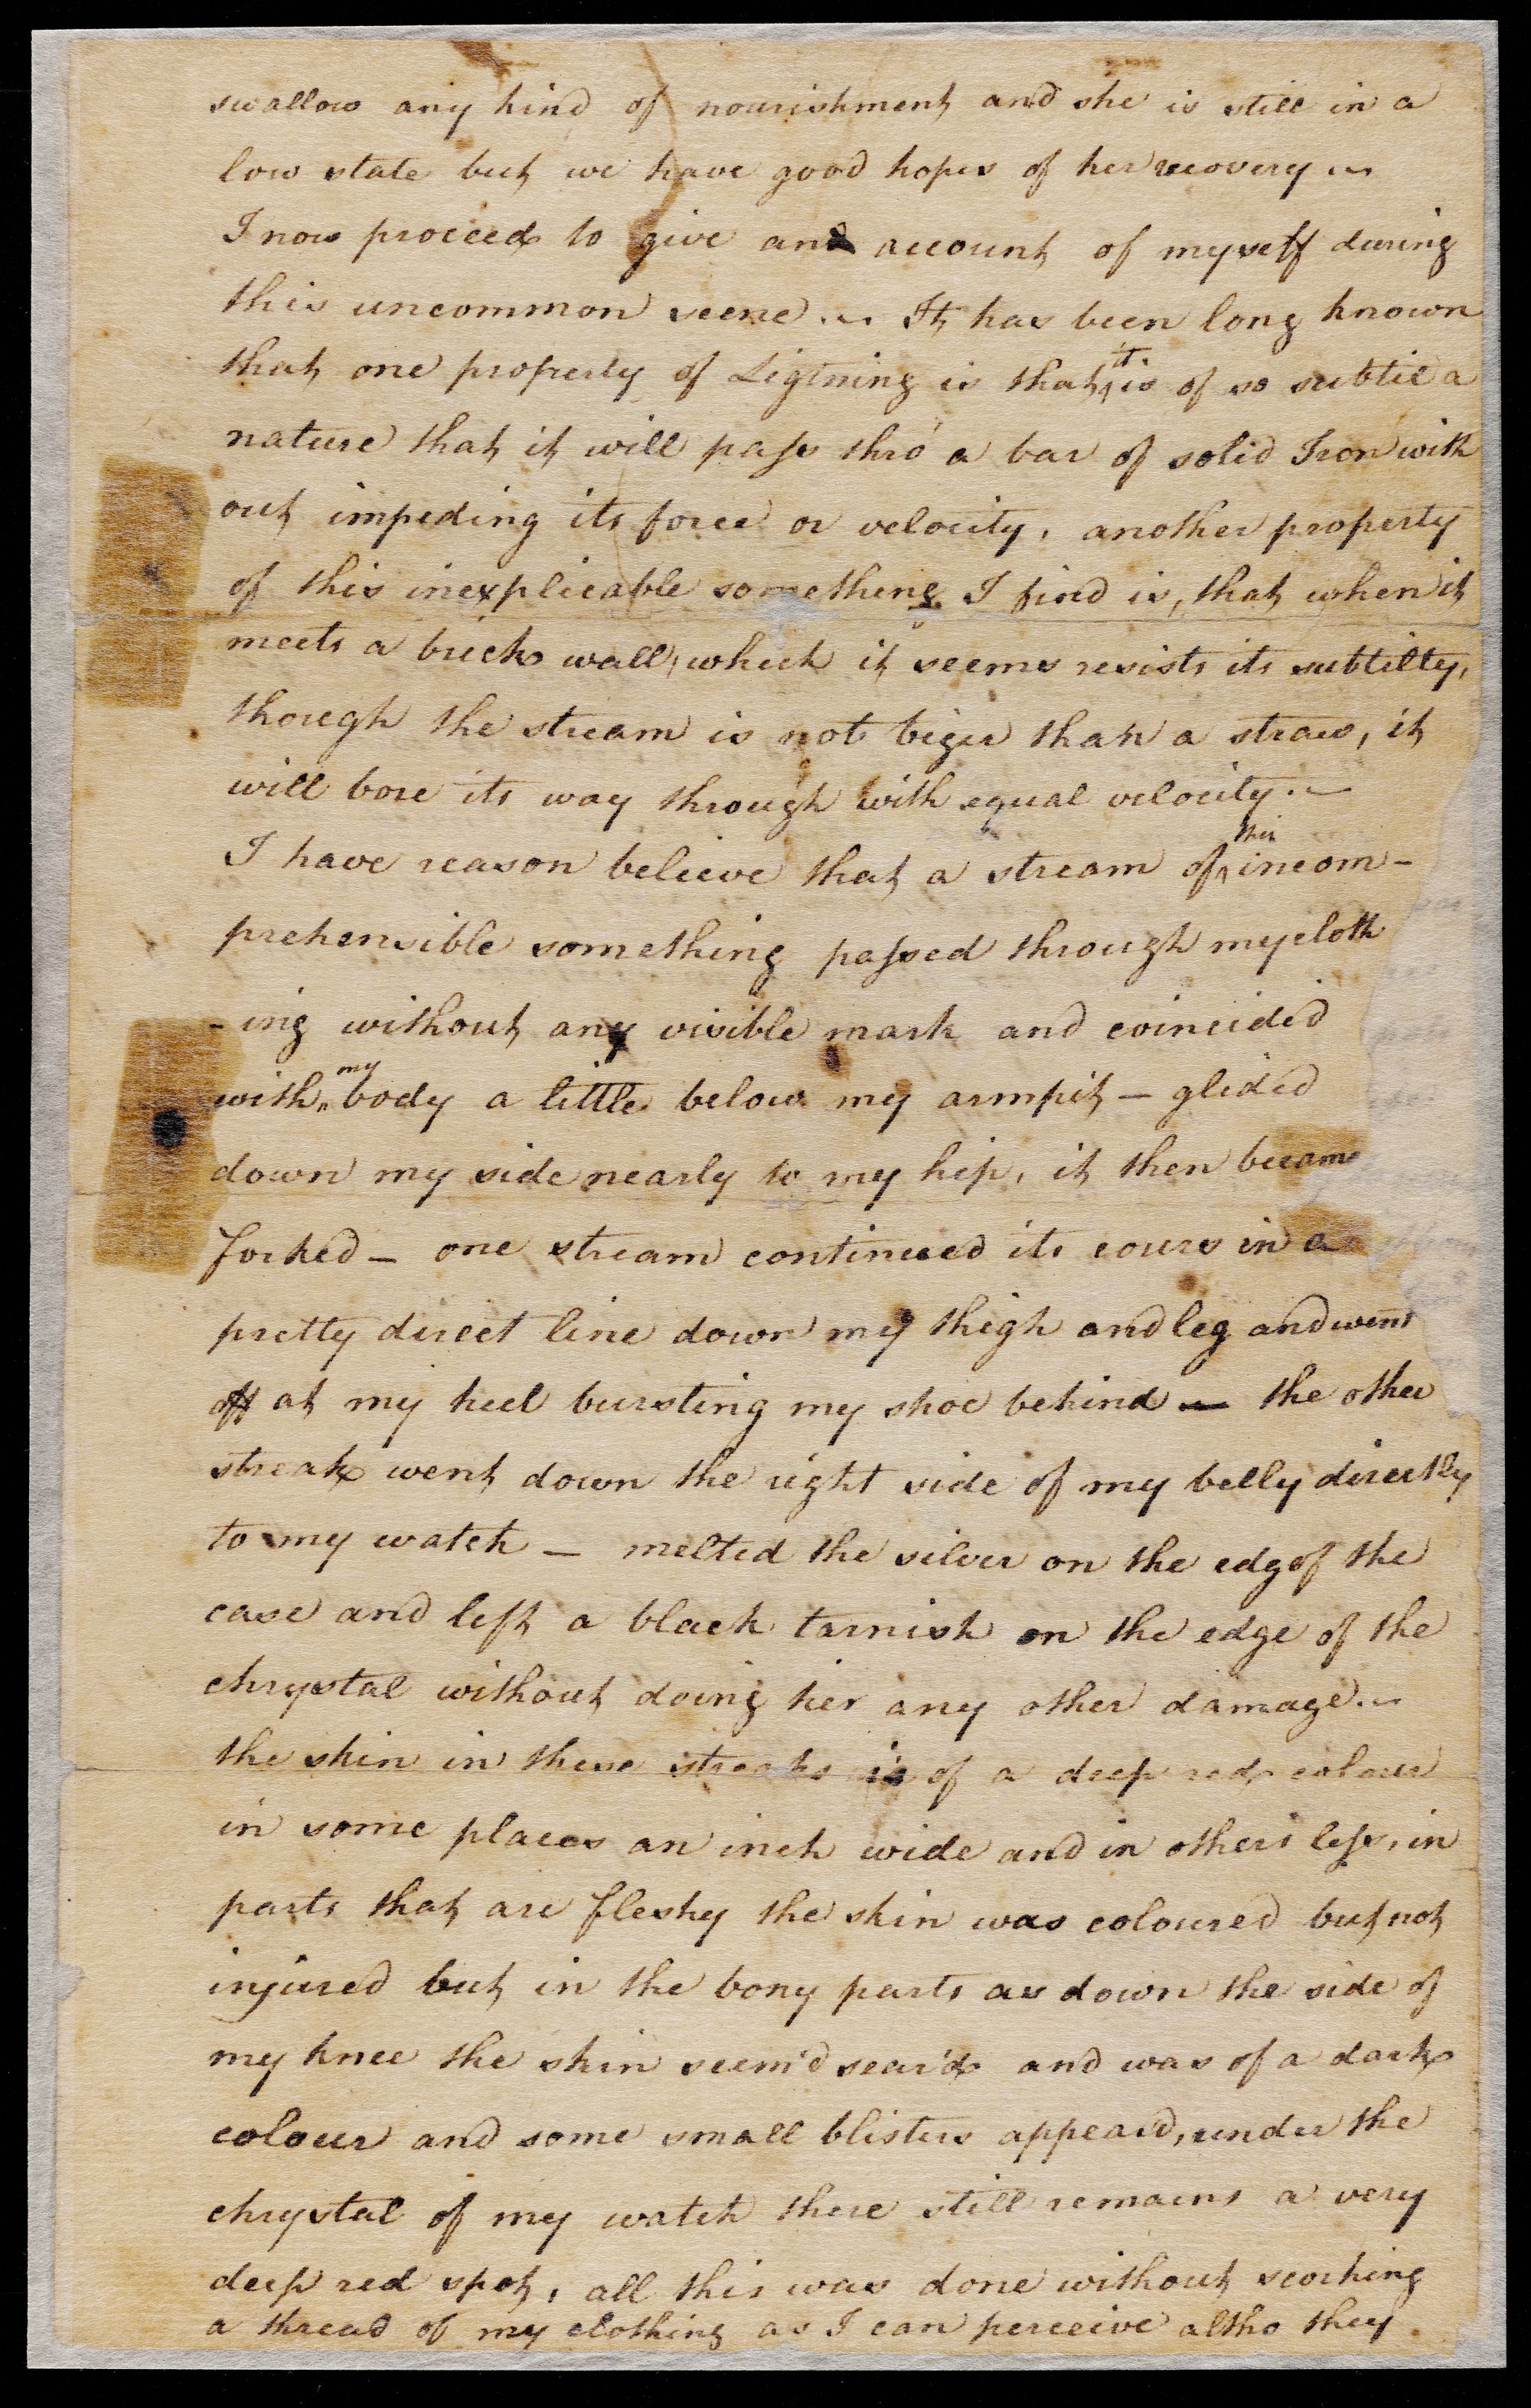 swallow any kind of nourishment and she is still in a
low state but we have good hopes of her recovery ~
I now proceed to give and account of myself during
this uncommon scene ~ It has been long known
that one property of Ligtning is that it is of so subtil a
nature that it will paſs thro' a bar of solid Iron with
out impeding its force or velocity, another property
of this inexplicable something I find is, that when it
meets a brick wall, which it seems resists its subtilty,
though the stream is not biger than a straw, it
will bore its way through with equal velocity. ~
I have reason believe that a stream of this incom-
prehensible something paſsed through my cloth
-ing without any visible mark and coincided
with my body a little below my armpit — glided
down my side nearly to my hip, it then became
forked — one stream continued its cours in a
pretty direct line down my thigh and leg and went
off at my heel bursting my shoe behind — the other
streak went down the right side of my belly directly
to my watch — melted the silver on the edg of the
case and left a black tarnish on the edge of the
chrystal without doing her any other damage. ~
the skin in these streaks is of a deep red colour
in some places an inch wide and in others leſs, in
parts that are fleshy the skin was coloured but not
injured but in the bony parts as down the side of
my knee the skin seem'd sear'd and was of a dark
colour and some small blisters appear'd, under the
chrystal of my watch there still remains a very
deep red spot, all this was done without scorching
a thread of my clothing as I can perceive altho they